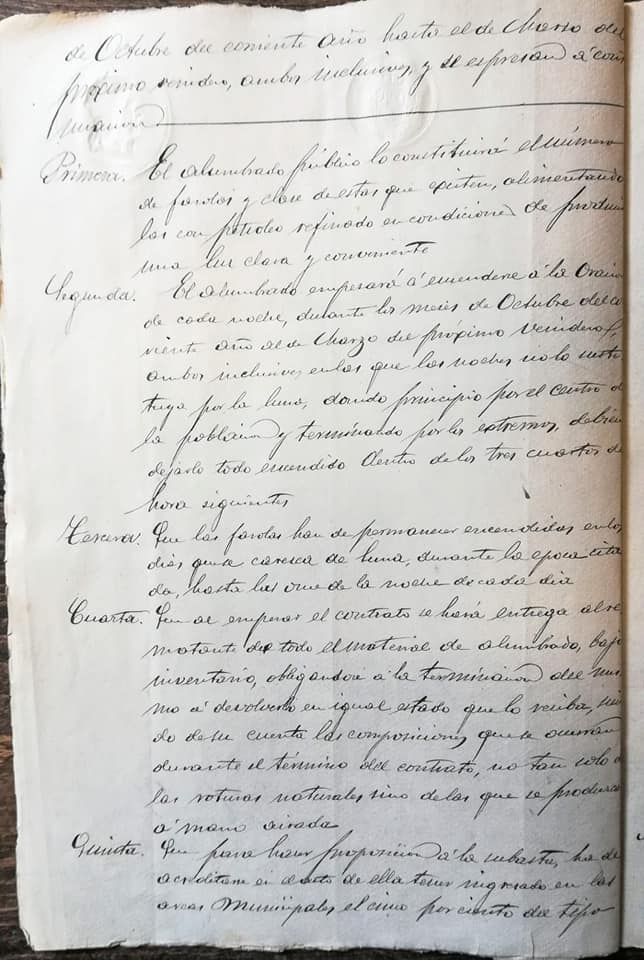 de Octubre del corriente año hasta el de Marzo del
próximo venidero, ambos inclusives, y se espresan á conti
nuacion
Primera. El alumbrado público lo constituirá el número
de farolas y clase de estas que existen, alimentando
las con petroleo refinado en condiciones de producir
una luz clara y conveniente
Segunda. El alumbrado empesará á encenderse á la Oracion
de cada noche, durante los meses de Octubre del co
rriente año al de Marzo del próximo venidero,
ambos inclusives en las que las noches no lo susti
tuya por la luna, dando principio por el centro de
la poblacion y terminando por los extremos, debien
dejarlo todo encendido dentro de los tres cuartos de
hora siguientes
Tercera. Que las farolas han de permanecer encendidas en los
dias que se caresca de luna, durante la epoca cita
da, hasta las once de la noche de cada dia
Cuarta. Que al empezar el contrato se hará entrega al re
matante de todo el material de alumbrado, bajo
inventario, obligandose á la terminacion del mis
mo á devolverlo en igual estado que lo reciba, sien
do de su cuenta las composiciones que se ocurran
durante el término del contrato, no tan solo de
las roturas naturales sino de las que se produzcan
á mano airada
Quinta. Que para hacer proposicion á la subasta, ha de
acreditarse en el acto de ella tener ingresado en las
arcas Municipales el cinco por ciento del tipo